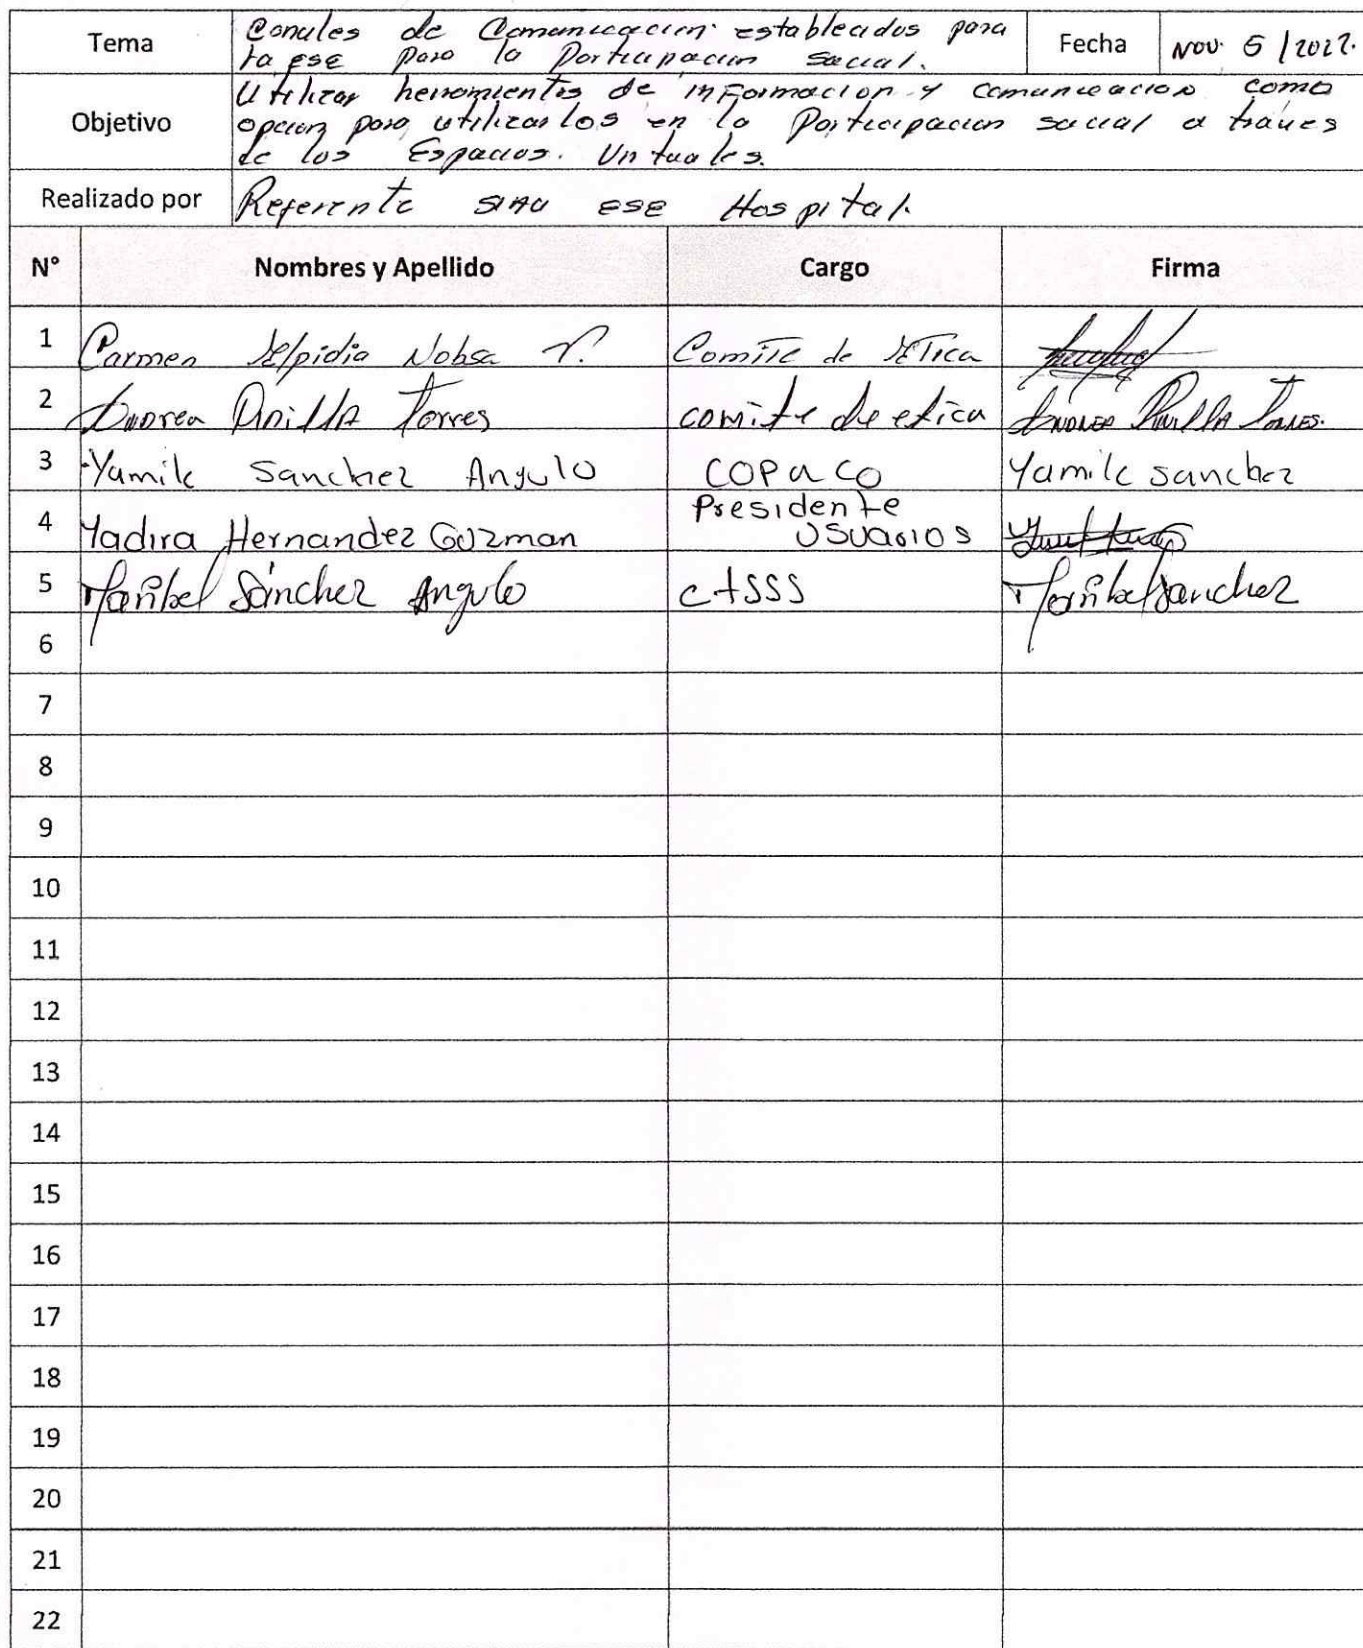 Tema
Canales de Comunicacion establecidos para
la ESE para la Participacion social.
Fecha
Nov. 5/2022.
Objetivo
Utilizar herramientas de informacion y comunicacion como
opcion para utilizarlos en la Participacion social a traves
de los Espacios. Virtuales.
Realizado por
Referente SIAU ESE Hospital.
N° Nombres y Apellido Cargo Firma
1 Carmen Elpidia Nobsa Comite de Etica
2 Andrea Pinilla Torres comite de etica Andrea Pinilla Torres.
3 Yamile Sanchez Angulo COPACO Yamile Sanchez
4 Yadira Hernandez Guzman Presidente
Usuarios
5 Maribel Sánchez Angulo CTSSS Maribel Sanchez
6
7
8
9
10
11
12
13
14
15
16
17
18
19
20
21
22